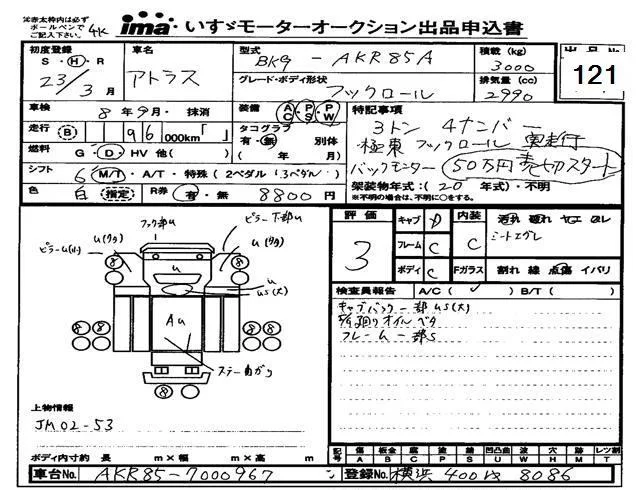 ※赤太枠内は必ず
ボールペンで
ご記入下さい。
4K
ima いすゞモーターオークション出品申込書
初度登録
S・H・R
23/3月
車名
アトラス
型式
BKG - AKR85A
グレード・ボディ形状
フックロール
積載 (kg)
3000
排気量 (cc)
2990
出品No.
121
車検
8年9月・抹消
装備 AC PS PW
特記事項
3トン 4ナンバー
極東 フックロール 実走行
バックモニター 50万円売切スタート
架装物年式:(20 年式)・不明
※不明の場合は、不明に○をする。
走行 B 96 000km「 」
タコグラフ
有・無 別体
( 年 月)
燃料 G・D・HV 他( )
シフト 6 M/T・A/T・特殊(2ペダル・3ペダル)
色 白 指定 R券 有・無 8800円
評価
3
キャブ D
フレーム C
ボディ C
内装 C
Fガラス
汚れ 破れ ヤケ スレ
シートエグレ
割れ 線 点傷 イバリ
検査員報告 A/C( ✓ ) B/T( )
キャブバック一部US(大)
オイルベタ
フレーム一部S
フック部U
ピラー下部U
ピラーU(小)
U(ワタ)
U(ワタ)
U
U
US(大)
AU
ステー曲がり
8 8
8 8
8 8
8
上物情報
JM02-53
ボディ内寸約 長 m×幅 m×高 m
記号
傷 板金 腐 塗 錆 凹凸曲 波 穴 跡 レツ割
A B C P S U W H M T
車台No. AKR85-7000967
登録No. 横浜 400 は 8086